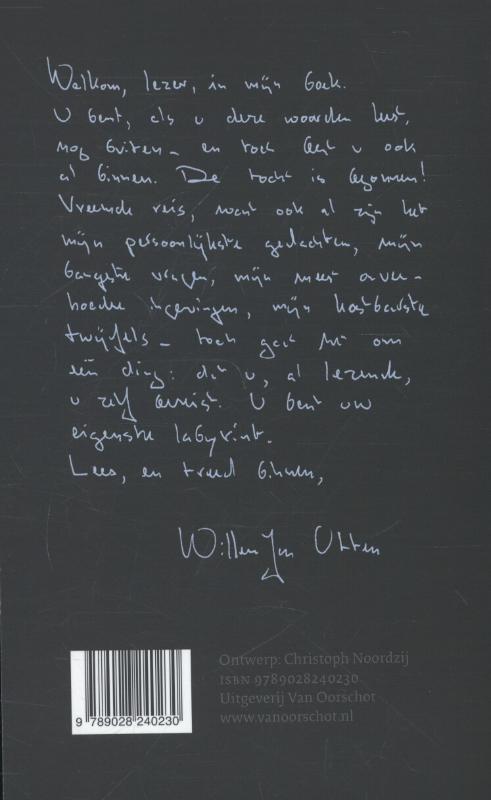 Welkom, lezer, in mijn boek.
U bent, als u deze woorden leest,
nog buiten – en toch bent u ook
al binnen. De tocht is begonnen!
Vreemde reis, want ook al zijn het
mijn persoonlijkste gedachten, mijn
bangste vragen, mijn meest onver-
hoedse ingevingen, mijn kostbaarste
twijfels – toch gaat het om
één ding: dat u, al lezende,
u zelf wordt. U bent uw
eigenste labyrint.
Lees, en treed binnen,
Willem Jan Otten
9 789028 240230
Ontwerp: Christoph Noordzij
ISBN 9789028240230
Uitgeverij Van Oorschot
www.vanoorschot.nl